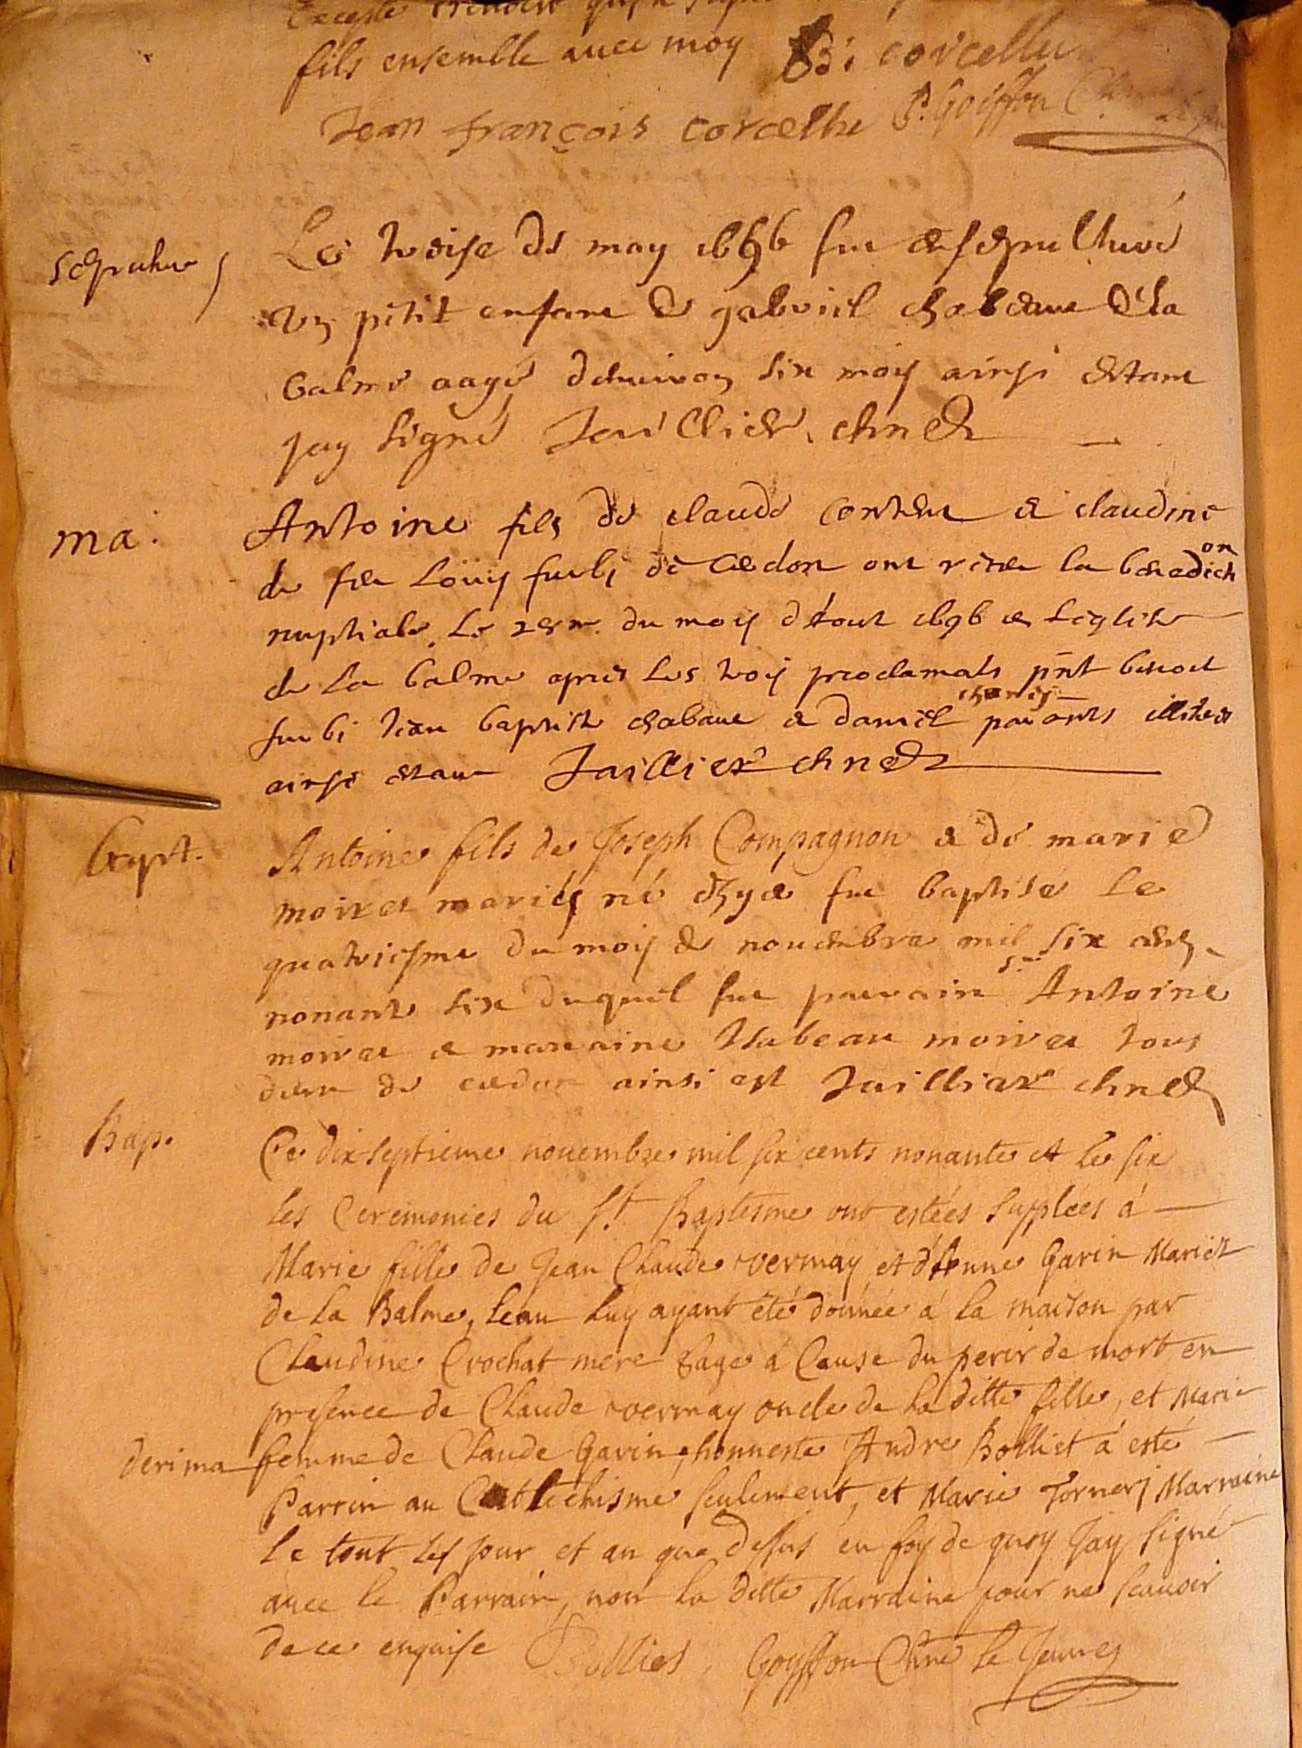 fils ensemble avec moy B: corcelle
Jean françois corcelle P. Goiffon
sepulture
Le treise de may 1696 fut ensepulturé
un pitit enfant de gabriel chabaue de la
balme aagé denuiron six moy ainsi estant
jay signé Jaillier chne
ma:
Antoine fils de claude et claudine
de feu Loüis furbi de cerdon ont la benedich on
nuptiale le du moy 1696 en leglise
de la balme apres les trois proclamats pnt benoit
furbi Jean baptiste chabaue et daniel
ainsi estant Jaillier chne
bapt.
Antoine fils de Joseph Compagnon et de marie
moiret mariés né fut baptisé le
quatriesme du moy de nouembre mil six cens
nonante six duquel fut parrain Sr Antoine
moiret et marraine Isabeau moiret tous
deux de cerdon ainsi est Jaillier chne
Bap.
Ce dix septieme nouembre mil six cents nonante et le six
les Ceremonies du St. Baptesme ont estées supplées à
Marie fille de Jean Claude vermay et Garin Mariez
de la Balme, leau luy ayant été donnée à la maison par
Claudine Crochat mere sage à Cause du perir de mort en
presence de Claude vermay oncle de la ditte fille, et Marie
derima femme de Claude Garin, honneste Andre Bolliet à esté
Parrin au Cattechisme seulement, et Marie Tornerj Marraine
le tout les jour et an que dessus en foy de quoy Jay signé
auec le Parrain, non la ditte Marraine pour ne scauoir
de ce enquise Bolliet, Goyffon Chne Le Jeune